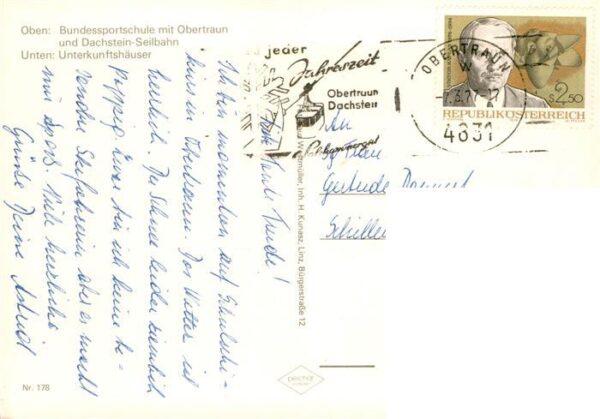 Oben: Bundessportschule mit Obertraun
und Dachstein-Seilbahn
Unten: Unterkunftshäuser
Liebe Tante Trude!
Ich bin momentan auf Schulschi-
kurs in Obertraun. Das Wetter ist
herrlich. Der Schnee leider ziemlich
pappig. Zwar bin ich keine be-
sondere Skifahrerin aber es macht
mir Spaß. Viele herzliche
Grüße Deine Astrid
Nr. 178
jeder
Jahreszeit
Obertraun
Dachstein
Salzkammergut
OBERTRAUN
4831
2.50
REPUBLIK ÖSTERREICH
An
Frau
Gertrude
Schiller
Westmüller, Inh. H. Kunasz, Linz, Bürgerstraße 12